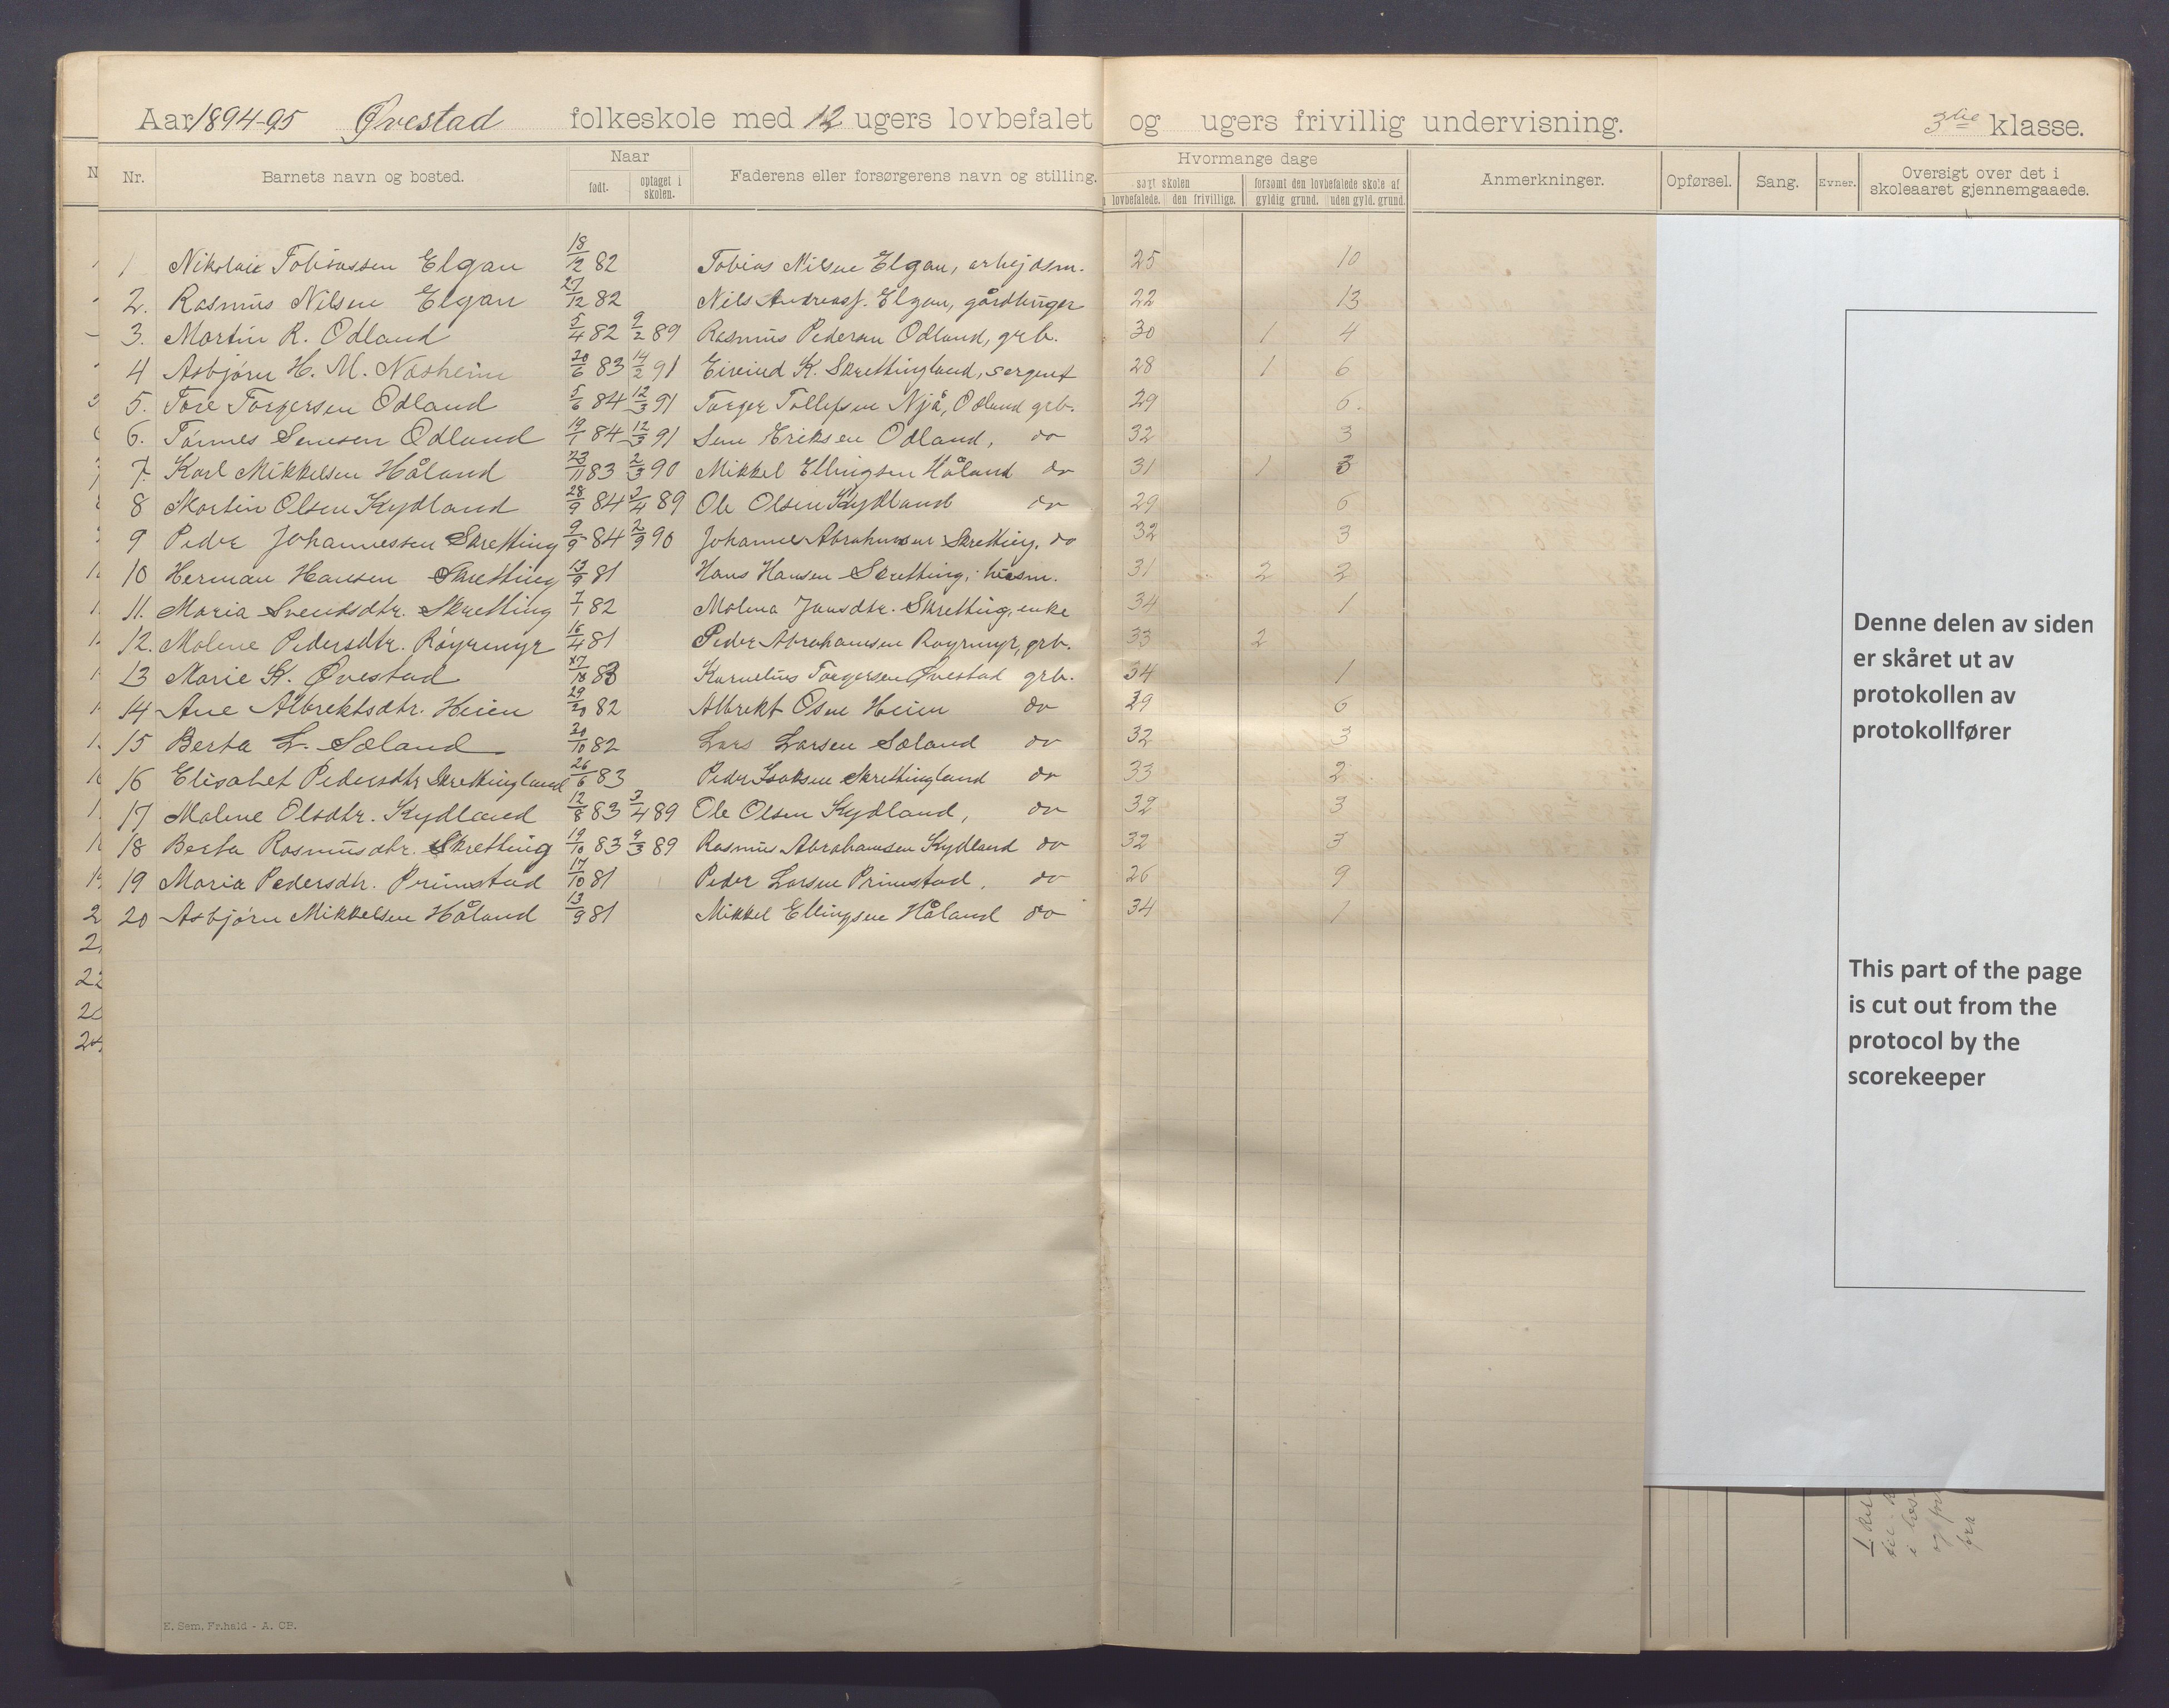 Aar 1894-95 Øvestad folkeskole med 12 ugers lovbefalet og ugers frivillig undervisning. 3die klasse.
Nr. Barnets navn og bosted. Naar født. optaget i skolen. Faderens eller forsørgerens navn og stilling. Hvormange dage søgt skolen lovbefalede. den frivillige. forsømt den lovbefalede skole af gyldig grund. uden gyld. grund. Anmerkninger. Opførsel. Sang. Evner. Oversigt over det i skoleaaret gjennemgaaede.
1 Nikolai Tobiassen Elgan 18/12 82 Tobias Nilsen Elgan, arbejdsm. 25 10
2. Rasmus Nilsen Elgan 27/12 82 Nils Andreass. Elgan, gårdbruger 22 13
3. Martin R. Odland 5/4 82 9/2 89 Rasmus Pedersen Odland, grb. 30 1 4
4 Asbjørn H. M. Næsheim 20/6 83 14/2 91 Eivind K. Skrettingland, sergent 28 1 6
5. Tore Torgersen Odland 5/6 84 12/3 91 Torger Tollefsen Njå, Odland grb. 29 6.
6. Tønnes Semsen Odland 19/1 84 12/3 91 Sem Eriksen Odland, do 32 3
7. Karl Mikkelsen Håland 23/11 83 2/3 90 Mikkel Ellingsen Håland do 31 1 3
8 Martin Olsen Kydland 28/9 84 3/4 89 Ole Olsen Kydland do 29 6
9 Peder Johannessen Skretting 9/9 84 2/9 90 Johannes Abrahamsen Skretting, do 32 3
10 Herman Hansen Skretting 13/9 81 Hans Hansen Skretting, husm. 31 2 2
11. Maria Svendsdtr. Skretting 7/1 82 Malena Jansdtr. Skretting, enke 34 1
12. Malene Pedersdtr. Røyrmyr 16/4 81 Peder Abrahamsen Røyrmyr, grb. 33 2
13 Marie K. Øvestad 83 Kornelius Torgersen Øvestad grb. 34 1
14 Ane Albrektsdtr. Heien 82 Albrekt Osen Heien do 29 6
15 Berta L. Sæland 20/10 82 Lars Larsen Sæland do 32 3
16 Elisabet Pedersdtr Skrettingland 26/6 83 Peder Isaksen Skrettingland do 33 2
17 Malene Olsdtr. Kydland 12/8 83 3/4 89 Ole Olsen Kydland, do 32 3
18 Berta Rasmusdtr. Skretting 19/10 83 9/3 89 Rasmus Abrahamsen Kydland do 32 3
19 Maria Pedersdtr. Primstad 17/10 81 Peder Larsen Primstad, do 26 9
20 Asbjørn Mikkelsen Håland 13/9 81 Mikkel Ellingsen Håland do 34 1
22
Denne delen av siden
er skåret ut av
protokollen av
protokollfører
This part of the page
is cut out from the
protocol by the
scorekeeper
E. Sem, Fr.hald - A. CP.